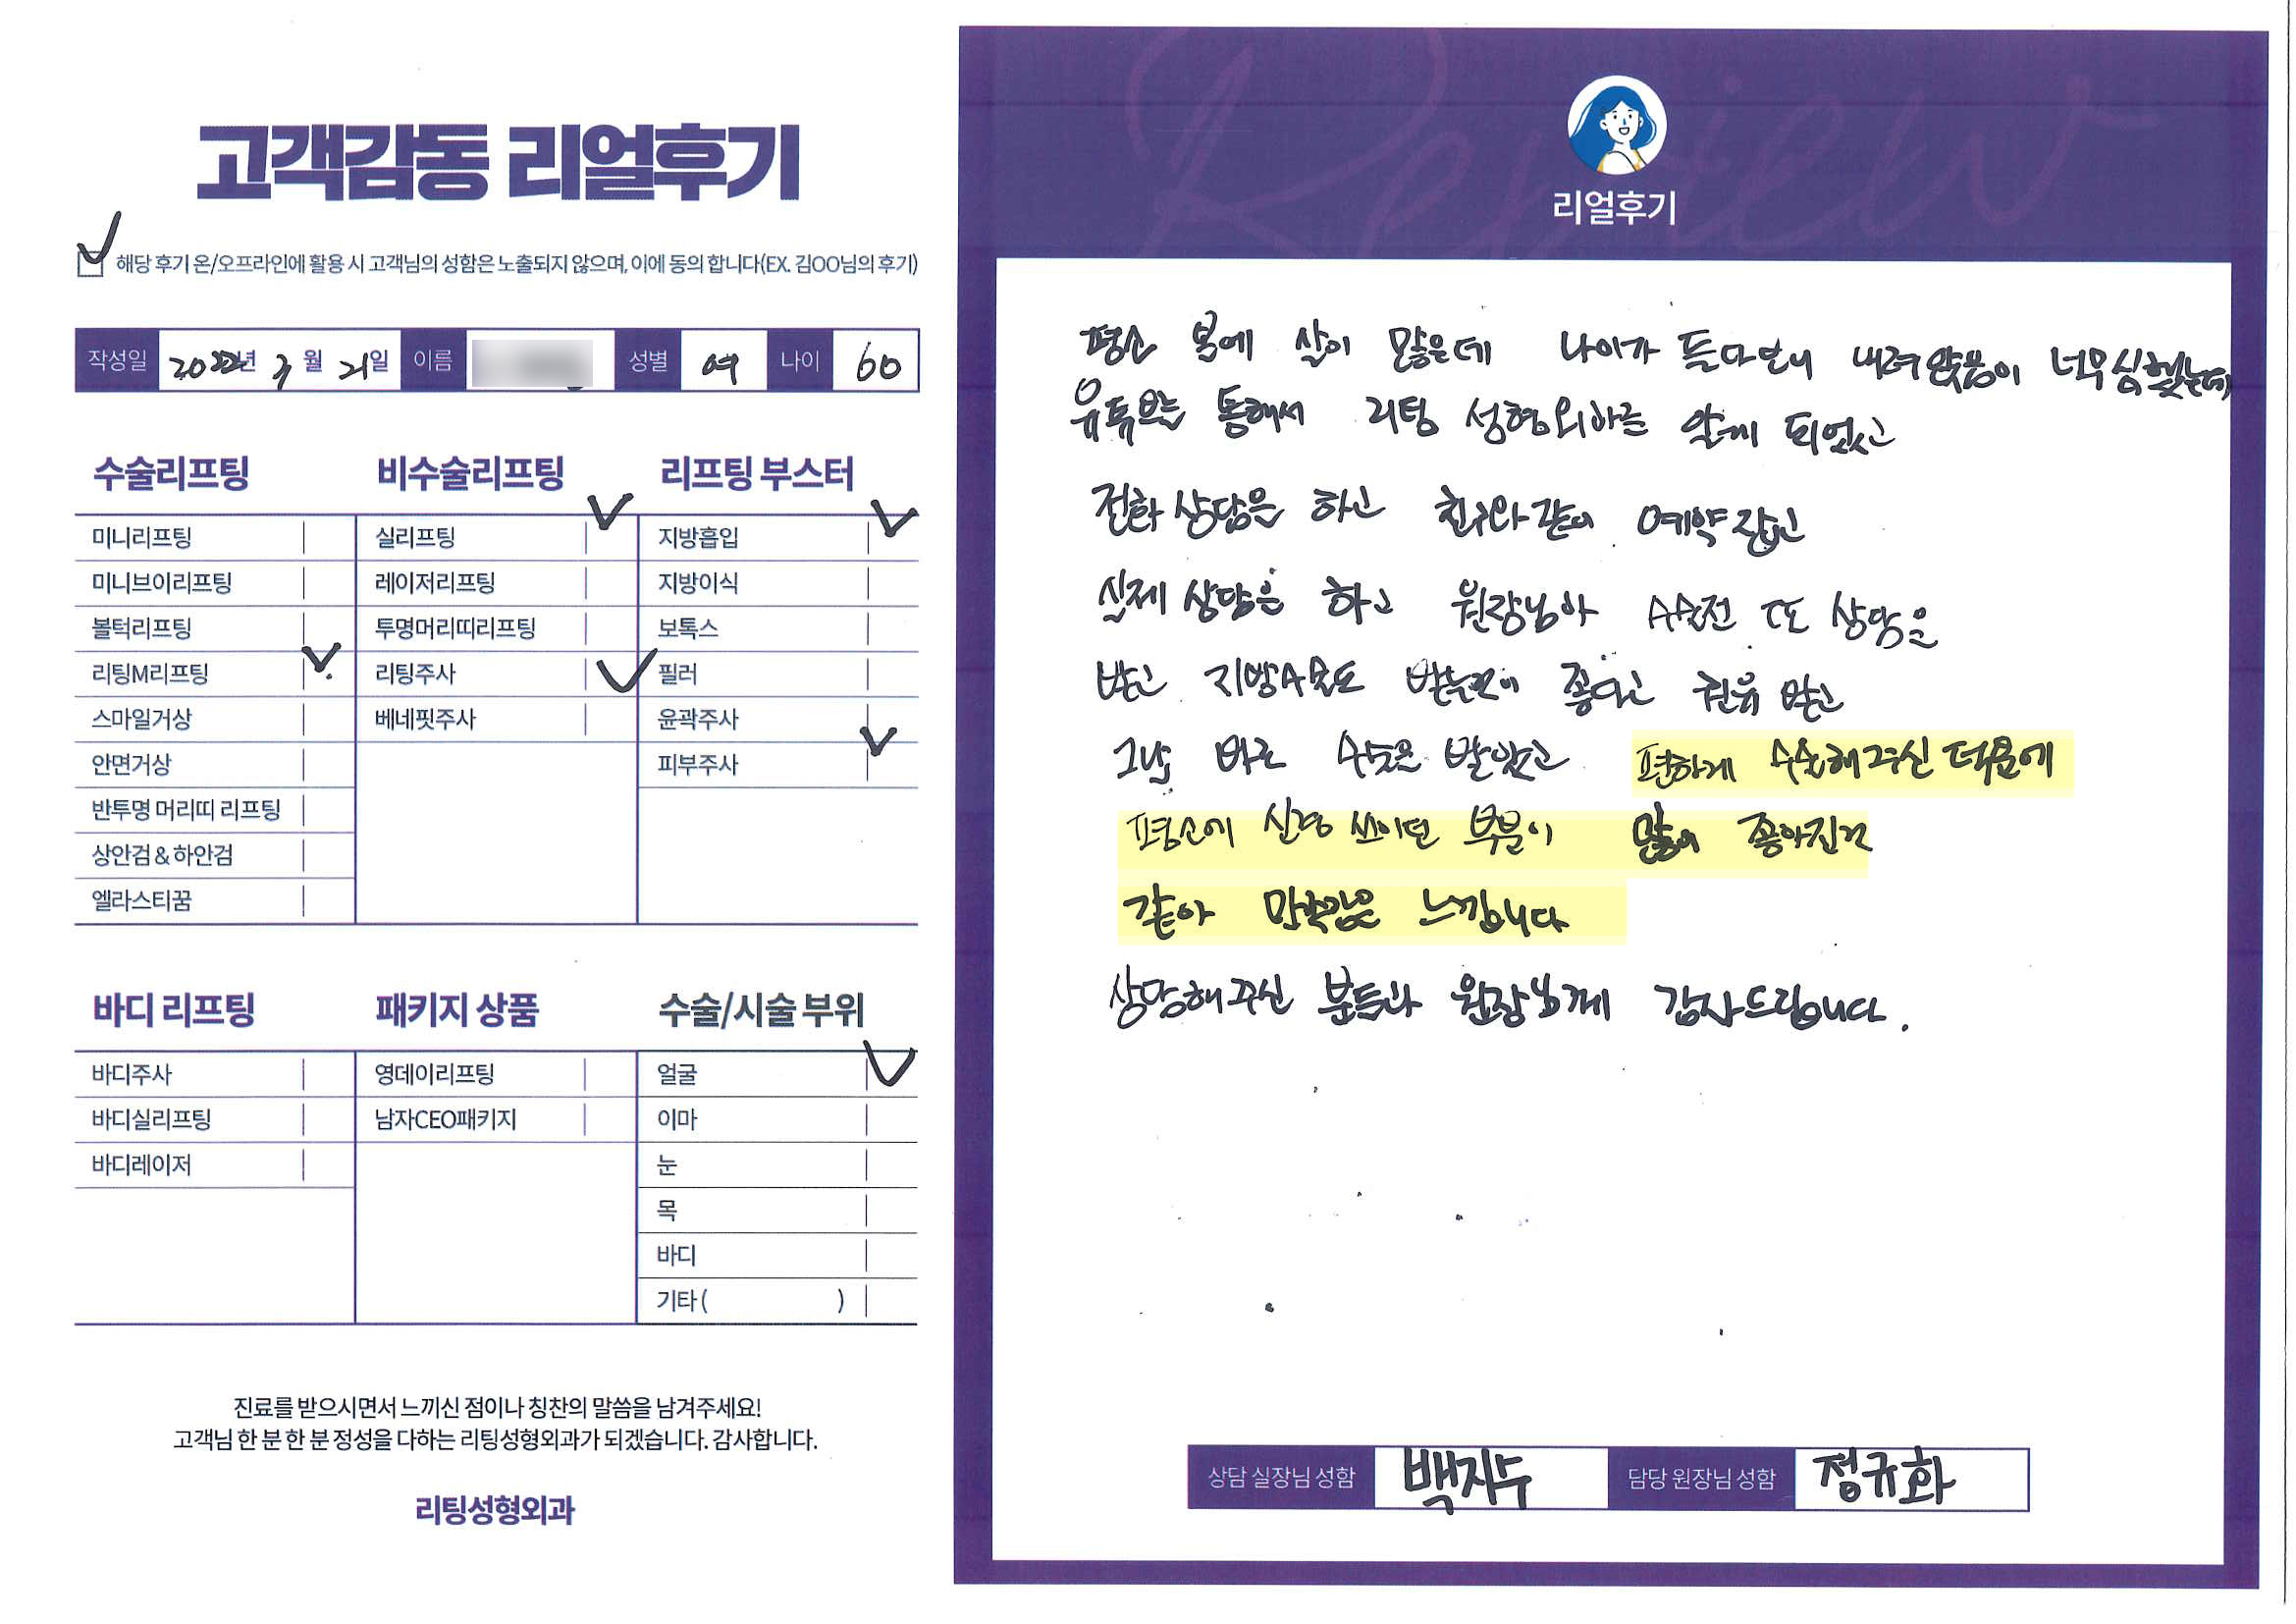 고객감동 리얼후기
해당 후기 온/오프라인에 활용 시 고객님의 성함은 노출되지 않으며, 이에 동의 합니다(EX. 김OO님의 후기)
작성일 2022년 3월 21일 이름 성별 여 나이 60
수술리프팅
미니리프팅
미니브이리프팅
볼턱리프팅
리팅M리프팅
스마일거상
안면거상
반투명 머리띠 리프팅
상안검 & 하안검
엘라스티꿈
비수술리프팅
실리프팅
레이저리프팅
투명머리띠리프팅
리팅주사
베네핏주사
리프팅 부스터
지방흡입
지방이식
보톡스
필러
윤곽주사
피부주사
바디 리프팅
바디주사
바디실리프팅
바디레이저
패키지 상품
영데이리프팅
남자CEO패키지
수술/시술 부위
얼굴
이마
눈
목
바디
기타 ( )
진료를 받으시면서 느끼신 점이나 칭찬의 말씀을 남겨주세요!
고객님 한 분 한 분 정성을 다하는 리팅성형외과가 되겠습니다. 감사합니다.
리팅성형외과
Review
리얼후기
평소 볼에 살이 많은데 나이가 들다보니 내려앉음이 너무 심했는데
유튜브를 통해서 리팅 성형외과를 알게 되었고
전화 상담을 하고 친구와 같이 예약 잡고
실제 상담을 하고 원장님과 수술전 또 상담을
받고 지방수술도 받는것이 좋다고 권유 받고
그날 바로 수술을 받았고 편하게 수술해주신 덕분에
평소에 신경 쓰이던 부분이 많이 좋아진거
같아 만족감을 느낍니다
상담해주신 분들과 원장님께 감사드립니다.
상담 실장님 성함 백지수 담당 원장님 성함 정규화